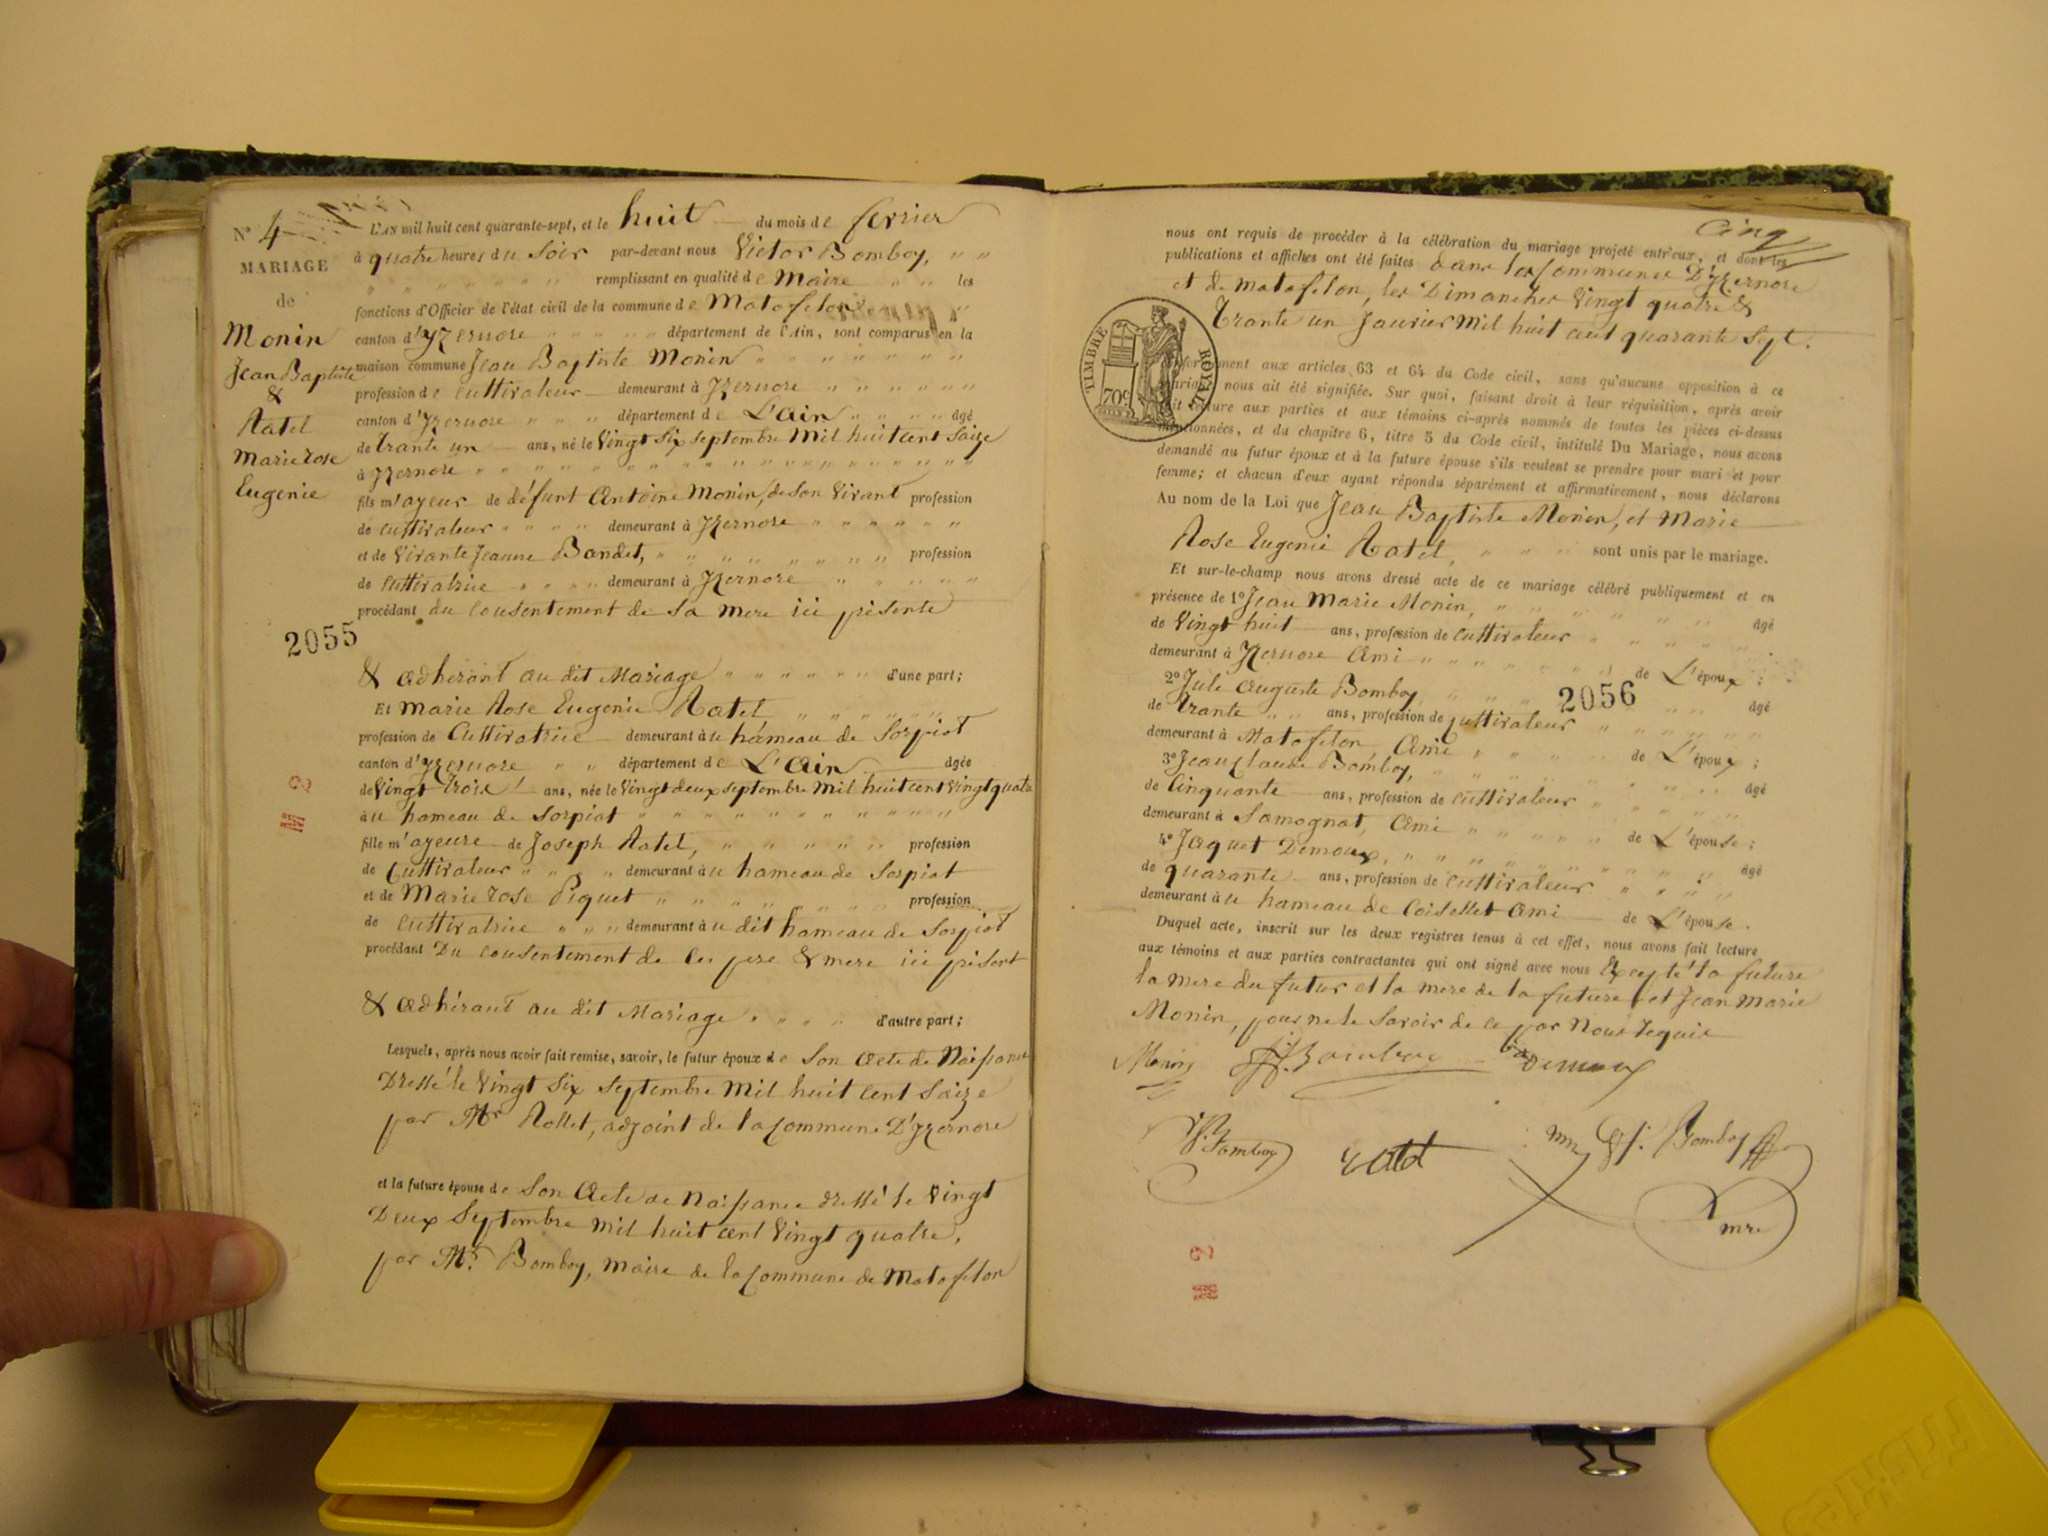 N° 4
MARIAGE
de
Monin
Jean Baptiste
&
Ratel
Marie rose
Eugenie
L'AN mil huit cent quarante-sept, et le huit du mois de fevrier
à quatre heures du Soir par-devant nous Victor Bomboy,
remplissant en qualité de Maire les
fonctions d'Officier de l'état civil de la commune de Matafelon
canton d'Yzernore département de l'Ain, sont comparus en la
maison commune Jean Baptiste Monin
profession de cultivateur demeurant à Yzernore
canton d'Yzernore département de L'Ain âgé
de trante un ans, né le Vingt Six septembre Mil huit cent Saize
à Yzernore
fils m'ayeur de défunt Antoine Monin, de son Vivant profession
de cultivateur demeurant à Yzernore
et de Vivante Jeanne Bandet, profession
de cultivatrice demeurant à Yzernore
procédant du consentement de sa mere ici présente
2055
& adhérant au dit Mariage d'une part;
Et Marie Rose Eugenie Ratel
profession de Cultivatrice demeurant à u hameau de Sorpiat
canton d'Yzernore département de L'Ain âgée
de Vingt trois ans, née le Vingt deux septembre Mil huit cent Vingt quatre
à u hameau de Sorpiat
fille m'ayeure de Joseph Ratel, profession
de Cultivateur demeurant à u hameau de Sorpiat
et de Marie rose Piquet profession
de cultivatrice demeurant à u dit hameau de Sorpiat
procédant Du consentement de ses pere & mere ici présent
& adhérant au dit Mariage d'autre part;
Lesquels, après nous avoir fait remise, savoir, le futur époux de Son Acte de Naissance
Dressé le Vingt Six Septembre Mil huit cent Saize
par Mr Rollet, adjoint de la Commune D'Yzernore
et la future épouse de Son Acte de Naissance dressé le Vingt
Deux Septembre Mil huit cent Vingt quatre,
par Mr. Bomboy, Maire de la Commune de Matafelon
Cinq
nous ont requis de procéder à la célébration du mariage projeté entr'eux, et dont les
publications et affiches ont été faites dans les Communes D'Yzernore
et de matafelon, les Dimanches Vingt quatre &
Trante un Janvier Mil huit cent quarante Sept.
TIMBRE ROYAL
70c
conformément aux articles 63 et 64 du Code civil, sans qu'aucune opposition à ce
mariage nous ait été signifiée. Sur quoi, faisant droit à leur réquisition, après avoir
fait lecture aux parties et aux témoins ci-après nommés de toutes les pièces ci-dessus
mentionnées, et du chapitre 6, titre 5 du Code civil, intitulé Du Mariage, nous avons
demandé au futur époux et à la future épouse s'ils veulent se prendre pour mari et pour
femme; et chacun d'eux ayant répondu séparément et affirmativement, nous déclarons
Au nom de la Loi que Jean Baptiste Monin, et Marie
Rose Eugenie Ratel, sont unis par le mariage.
Et sur-le-champ nous avons dressé acte de ce mariage célébré publiquement et en
présence de 1° Jean Marie Monin, âgé
de Vingt huit ans, profession de cultivateur
demeurant à Yzernore Ami de L'époux;
2° Jule Auguste Bomboy, âgé
2056
de trante ans, profession de Cultivateur
demeurant à Matafelon, Ami de L'époux;
3° Jean Claude Bomboy, âgé
de Cinquante ans, profession de cultivateur
demeurant à Samognat, Ami de L'épouse;
4° Jaquet Demoux, âgé
de quarante ans, profession de cultivateur
demeurant à u hameau de Coisellet Ami de L'épouse.
Duquel acte, inscrit sur les deux registres tenus à cet effet, nous avons fait lecture
aux témoins et aux parties contractantes qui ont signé avec nous Excepté la future
la mere du futur et la mere de la future et Jean Marie
Monin, pour ne le Savoir de ce par Nous requis
Monin Bomboy Demoux
Bomboy ratel Bomboy
mre